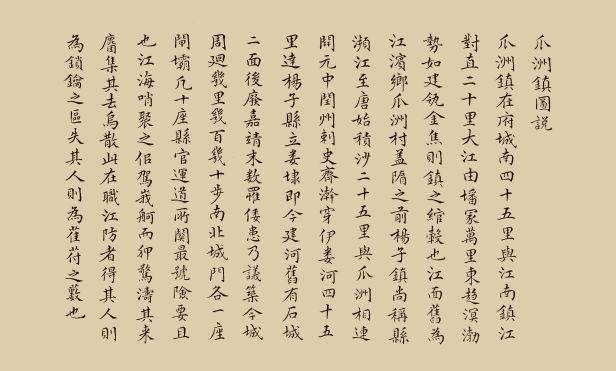 瓜洲鎮圖説
瓜洲鎮在府城南四十五里與江南鎮江
對直二十里大江由墦冢萬里東趋溟渤
勢如建瓴金焦則鎮之綰轂也江面舊為
江濱鄉瓜洲村盖隋之前楊子鎮尚稱縣
瀕江至唐始積沙二十五里與瓜洲相連
開元中閏州刺史齊澣穿伊婁河四十五
里達楊子縣立婁埭即今建河舊有石城
二面後廢嘉靖末数罹倭患乃議築今城
周廻幾里幾百幾十步南北城門各一座
閘壩凡十座縣官運道所關最號險要且
也江海哨聚之侶駕我舸而狎驚濤其来
麕集其去鳥散此在職江防者得其人則
為鎖鑰之區失其人則為萑苻之藪也